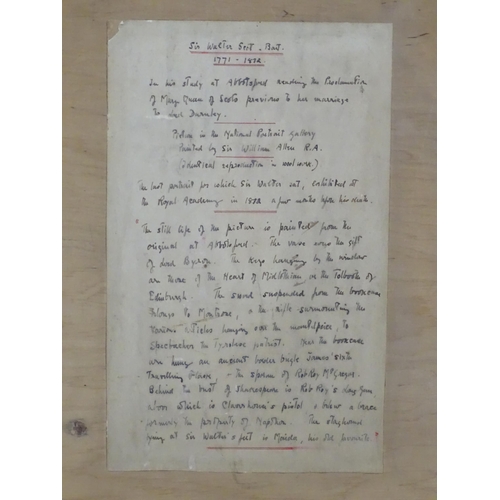 Sir Walter Scott. Bart.
1771 - 1832.
In his study at Abbotsford reading the Proclamation
of Mary Queen of Scots previous to her marriage
to Lord Darnley.
Picture in the National Portrait Gallery
Painted by Sir William Allan R.A.
(identical reproduction in wool work.)
The last portrait for which Sir Walter sat, exhibited at
the Royal Academy in 1832 a few weeks before his death.
"The still life of the picture is painted from the
original at Abbotsford:- The vase was the gift
of Lord Byron. The keys hanging by the window
are those of the Heart of Midlothian or the Tolbooth of
Edinburgh. The sword suspended from the bookcase
belongs to Montrose, & the rifle surmounting the
various articles hanging over the mantelpiece, to
Speckbacher the Tyrolese patriot. Near the bookcase
are hung an ancient border bugle James sixth
Travelling Flask, - the sporran of Rob Roy McGregor.
Behind the bust of Shakespeare is Rob Roy's long gun
above which is Claverhouse's pistol & below a brace
formerly the property of Napoleon. The staghound
lying at Sir Walter's feet is Maida, his old favourite